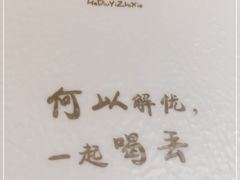 HeDiuYiZhiXie
何以解忧，
一起喝丢